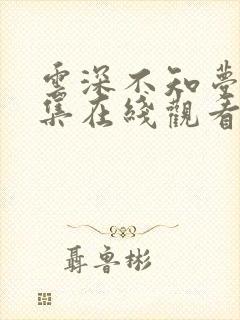 雲深不知夢
集在綫觀看
聶魯彬